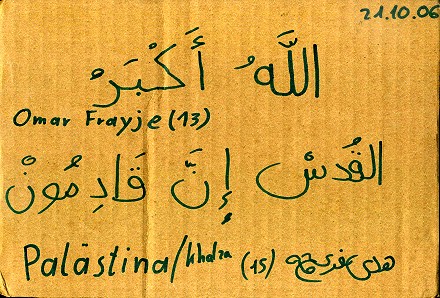 21.10.06
اللَّهُ أَكْبَرْ
Omar Frayje (13)
القُدْسْ إِنَّ قَادِمُونْ
Palästina/khelza (15)